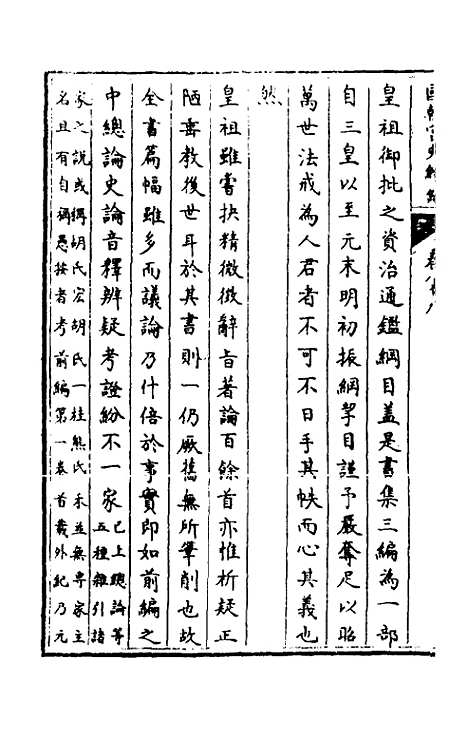 皇祖御批之資治通鑑綱目盖是書集三編為一部
自三皇以至元末明初振綱挈目謹予嚴奪足以昭
萬世法戒為人君者不可不日手其帙而心其義也
然
皇祖雖嘗抉精微徴辭旨著論百餘首亦惟析疑正
陋垂教後世耳於其書則一仍厥舊無所筆削也故
全書篇幅雖多而議論乃什倍於事實即如前編之
中總論史論音釋辨疑考證紛不一家已上總論等
五種雜引諸
家之說或稱胡氏宏胡氏一桂熊氏禾並無專家主
名且有自稱愚按者考前編第一卷首載外紀乃元